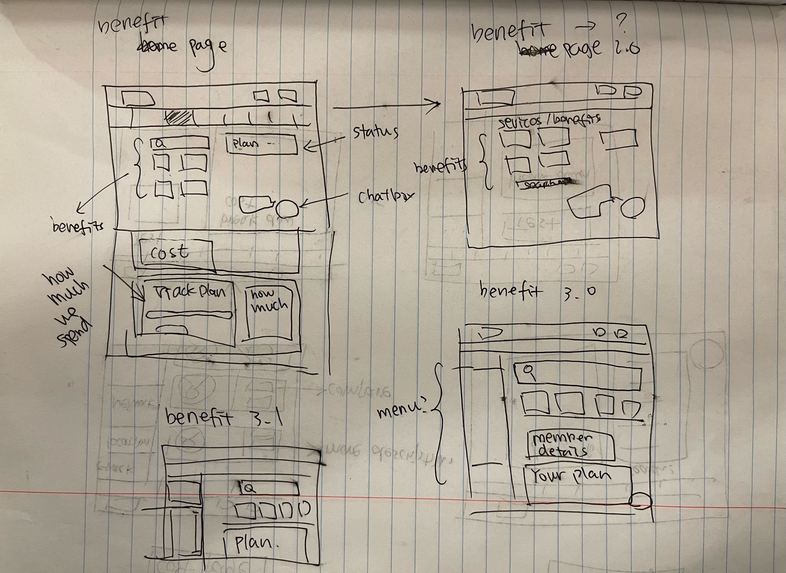 benefit
home page
benefit → ?
home page 2.0
Q
plan --
status
benefits
chatbox
cost
Track plan
how much
how much we spend
sevicos/benefits
benefits
benefit 3.0
menu?
Q
member details
Your plan
benefit 3.1
Q
plan.